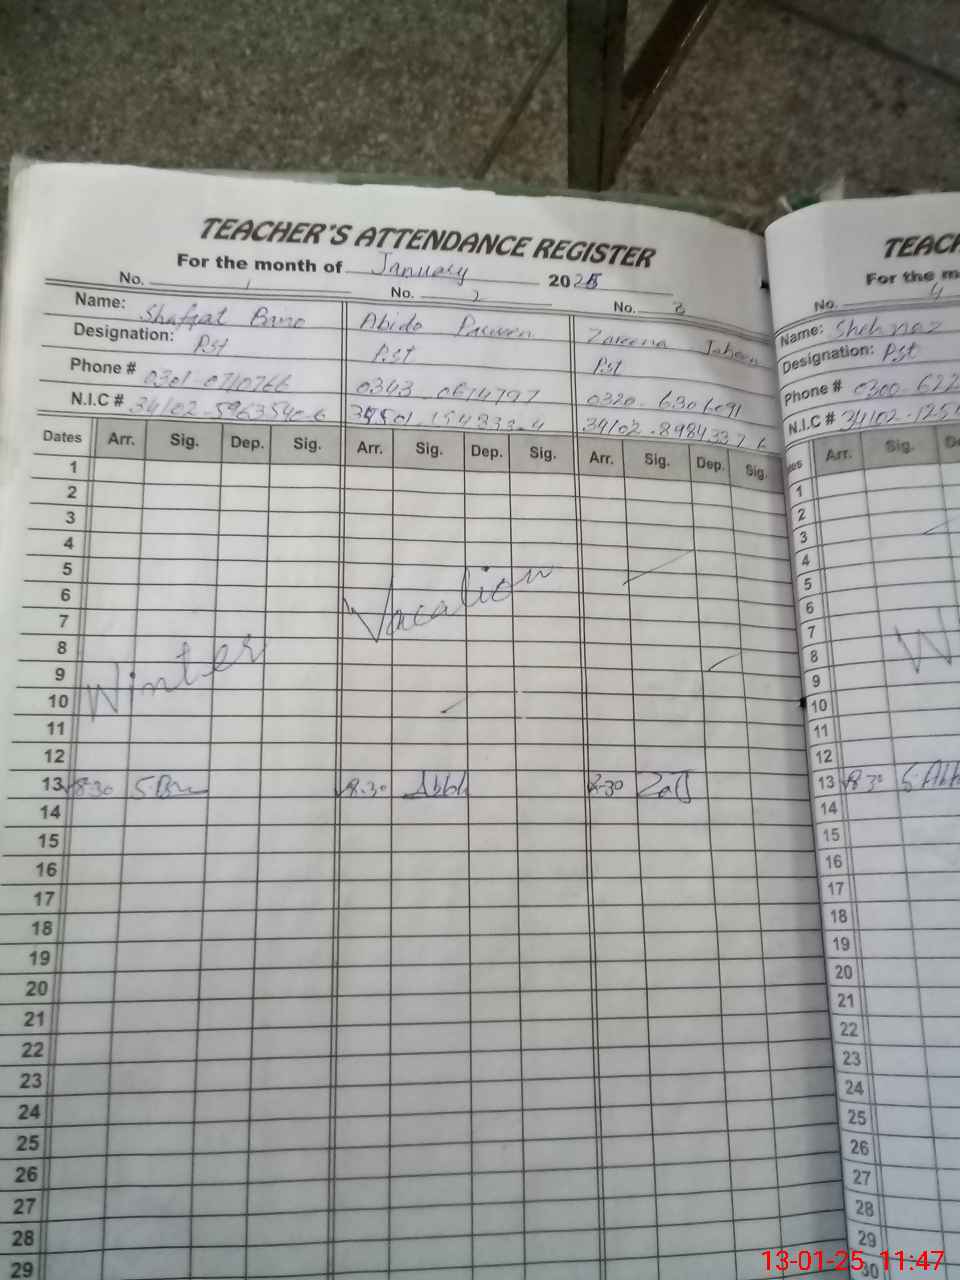 TEACHER'S ATTENDANCE REGISTER
For the month of January 2025
No. 1 No. 2 No. 3
Name: Shafqat Bano Abida Parveen Zareena Jabeen
Designation: Pst Pst Pst
Phone # 0301-0710766 0343-0614797 0320-6306091
N.I.C # 34102-5963540-6 34501-154333-4 34102-8984337-6
Dates Arr. Sig. Dep. Sig. Arr. Sig. Dep. Sig. Arr. Sig. Dep. Sig.
1
2
3
4
5
6
7
8
9
10
11
12
Winter Vacation
13 8-30 S.Bn 8-30 8-30
14
15
16
17
18
19
20
21
22
23
24
25
26
27
28
29
TEACH
For the m
No. 4
Name: Shehnaz
Designation: Pst
Phone # 0300-622
N.I.C # 34102-125
tes Arr. Sig. De
1
2
3
4
5
6
7
8
9
10
11
12
Wi
13 8-30
14
15
16
17
18
19
20
21
22
23
24
25
26
27
28
29
30
13-01-25 11:47